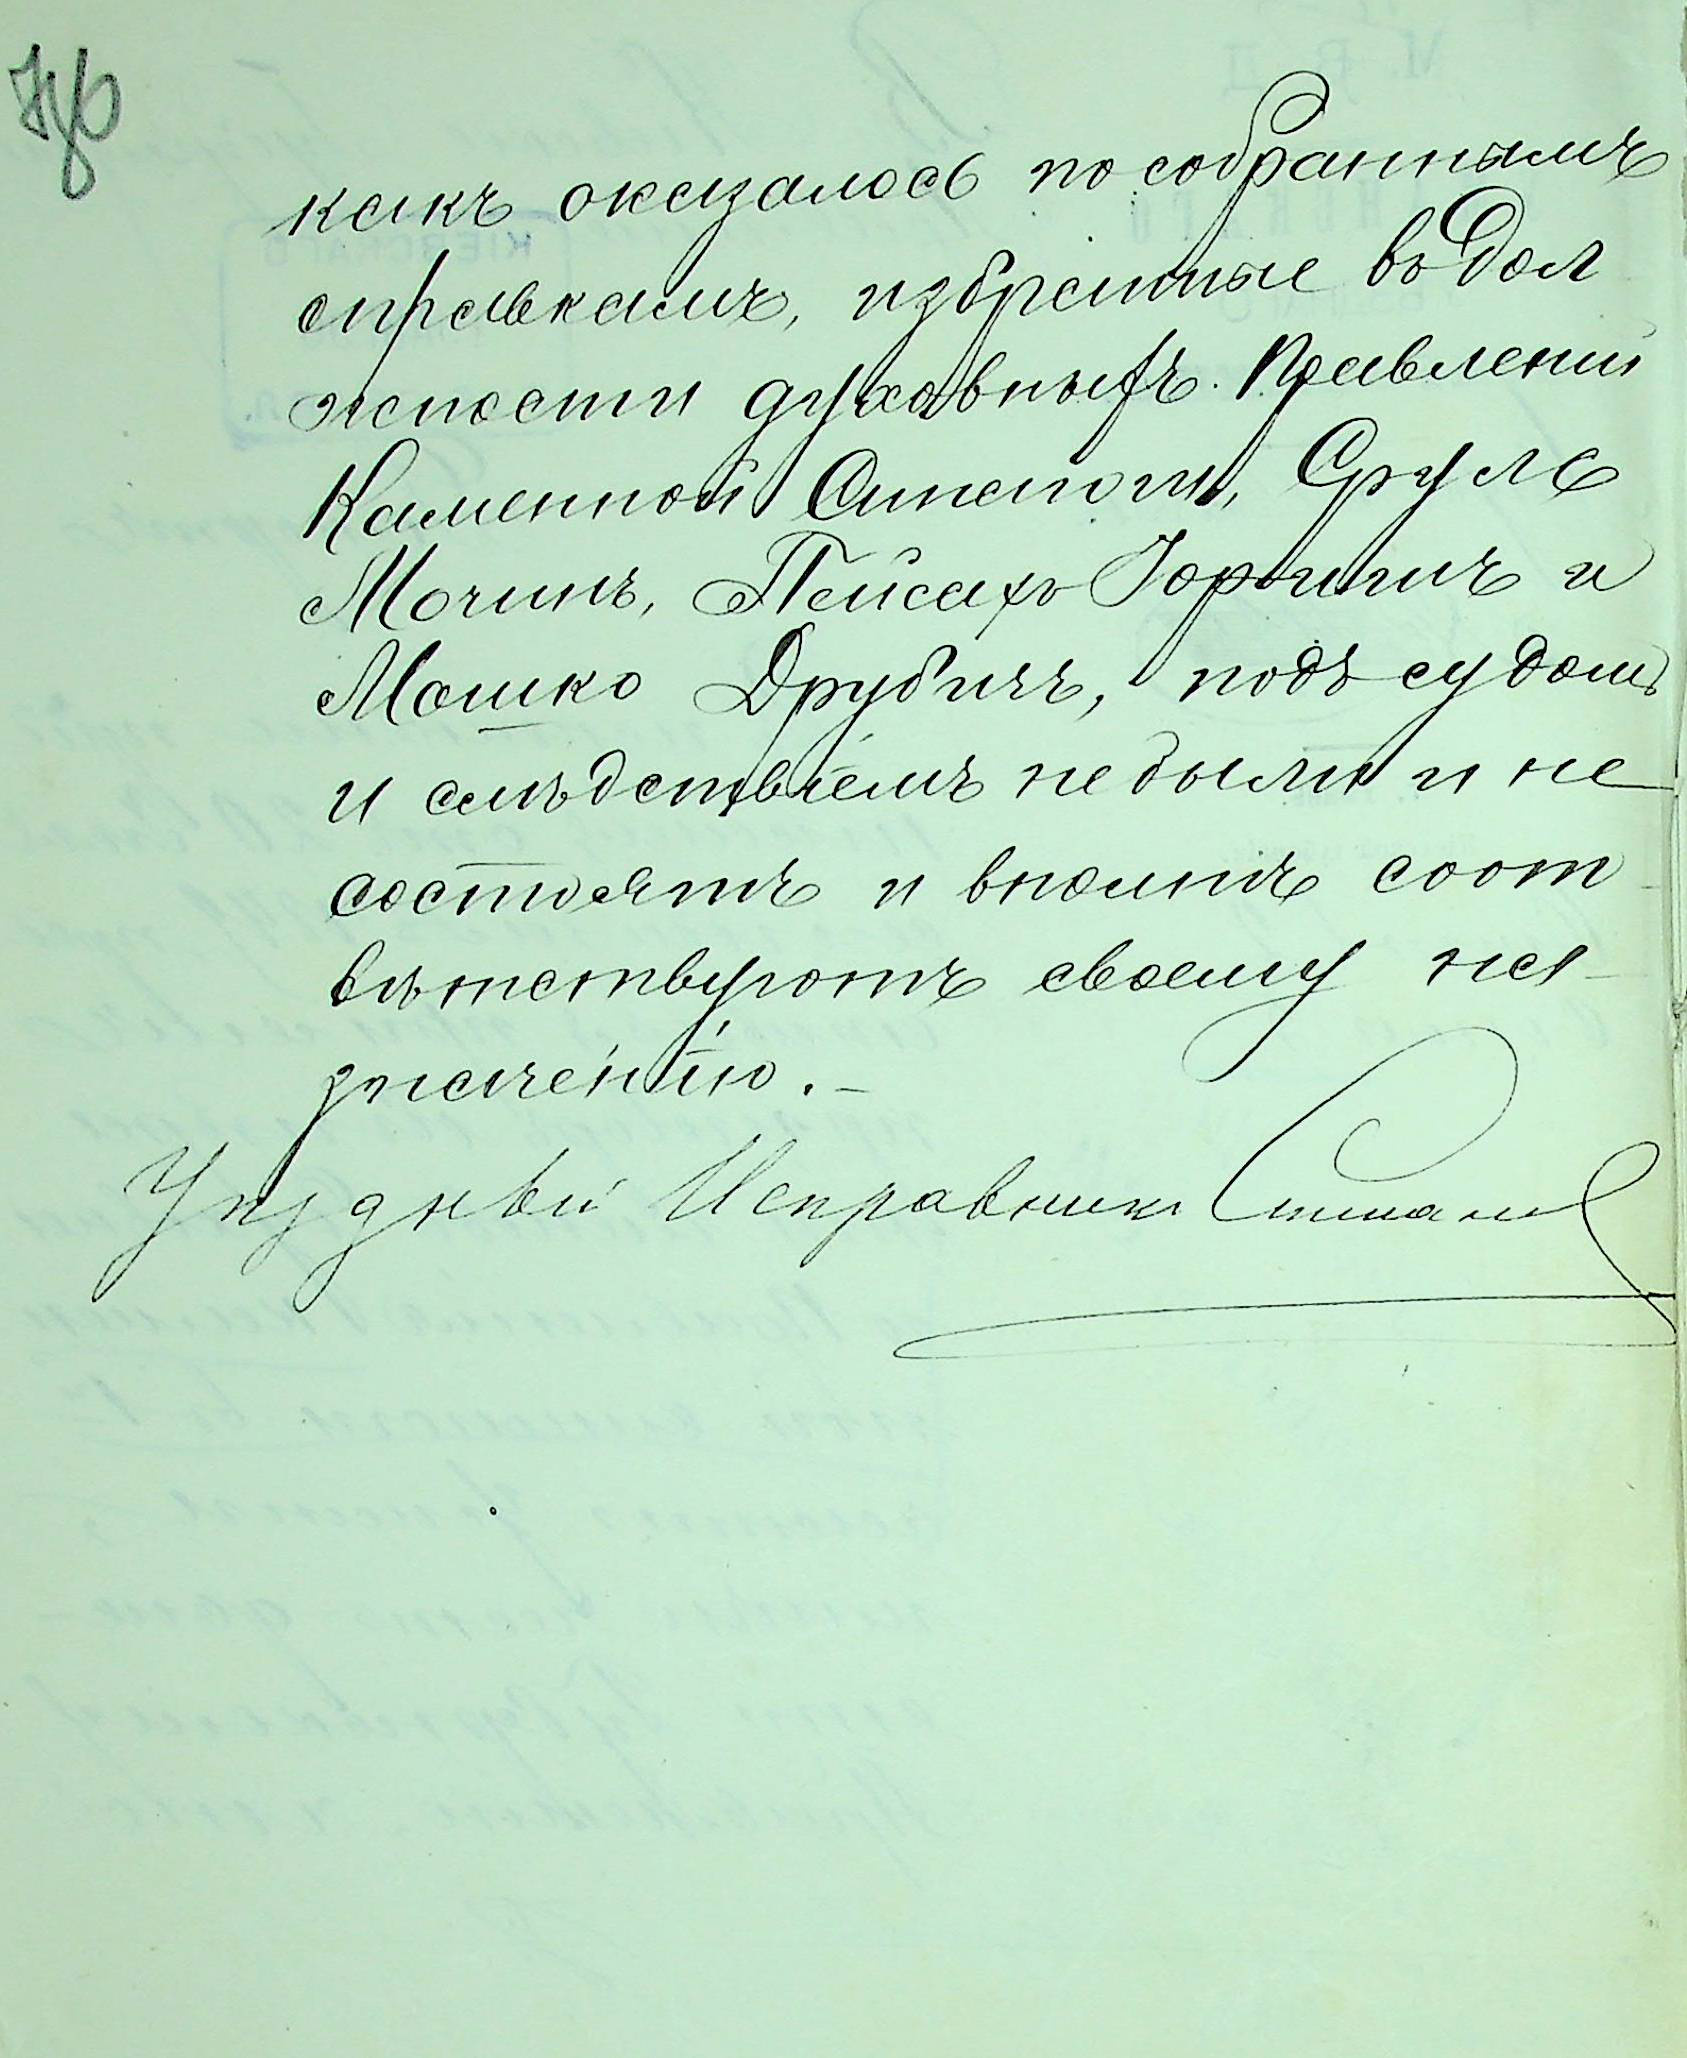 какъ оказалось по собраннымъ
справкамъ, избранные въ дол
жности духовныхъ Правленій
Каменной Синагоги, Сруль
Мочинъ, Пейсахъ и
Мошко Друбичъ, подъ судомъ
и слѣдствіемъ не были и не
состоятъ и вполнѣ соот
вѣтствуютъ своему на-
значенію.-
Уѣздный Исправникъ